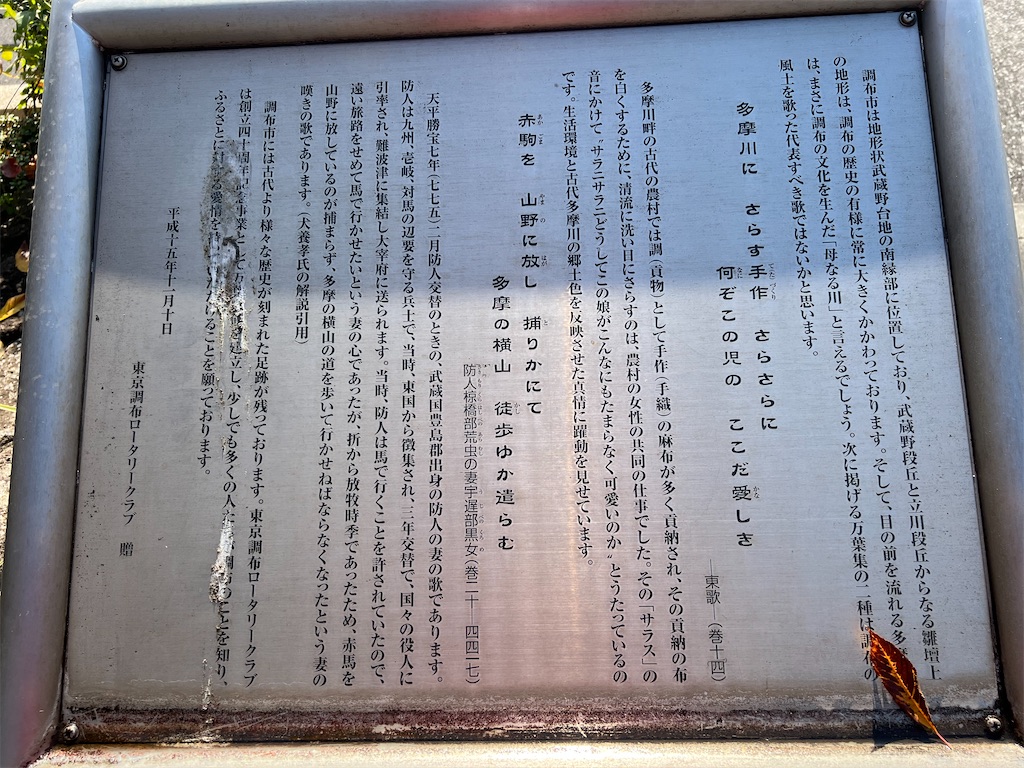 調布市は地形状武蔵野台地の南縁部に位置しており、武蔵野段丘と立川段丘からなる雛壇上
の地形は、調布の歴史の有様に常に大きくかかわっております。そして、目の前を流れる多
は、まさに調布の文化を生んだ「母なる川」と言えるでしょう。次に掲げる万葉集の二種は調布の
風土を歌った代表すべき歌ではないかと思います。
多摩川に さらす手作 さらさらに
何ぞこの児の ここだ愛しき
―東歌―(巻十四)
多摩川畔の古代の農村では調(貢物)として手作(手織)の麻布が多く貢納され、その貢納の布
を白くするために、清流に洗い日にさらすのは、農村の女性の共同の仕事でした。その「サラス」の
音にかけて〝サラニサラニどうしてこの娘がこんなにもたまらなく可愛いのか〟とうたっているの
です。生活環境と古代多摩川の郷土色を反映させた真情に躍動を見せています。
赤駒を 山野に放し 捕りかにて
多摩の横山 徒歩ゆか遣らむ
防人椋橋部荒虫の妻宇遅部黒女(巻二十―四四一七)
天平勝宝七年(七七五)二月防人交替のときの、武蔵国豊島郡出身の防人の妻の歌であります。
防人は九州、壱岐、対馬の辺要を守る兵士で、当時、東国から徴集され、三年交替で、国々の役人に
引率され、難波津に集結し大宰府に送られます。当時、防人は馬で行くことを許されていたので、
遠い旅路をせめて馬で行かせたいという妻の心であったが、折から放牧時季であったため、赤馬を
山野に放しているのが捕まらず、多摩の横山の道を歩いて行かせねばならなくなったという妻の
嘆きの歌であります。(犬養孝氏の解説引用)
調布市には古代より様々な歴史が刻まれた足跡が残っております。東京調布ロータリークラブ
は創立四十周年 事業として を建立し、少しでも多くの人 のことを知り、
ふるさとに 愛情を けることを願っております。
平成十五年十一月十日
東京調布ロータリークラブ 贈